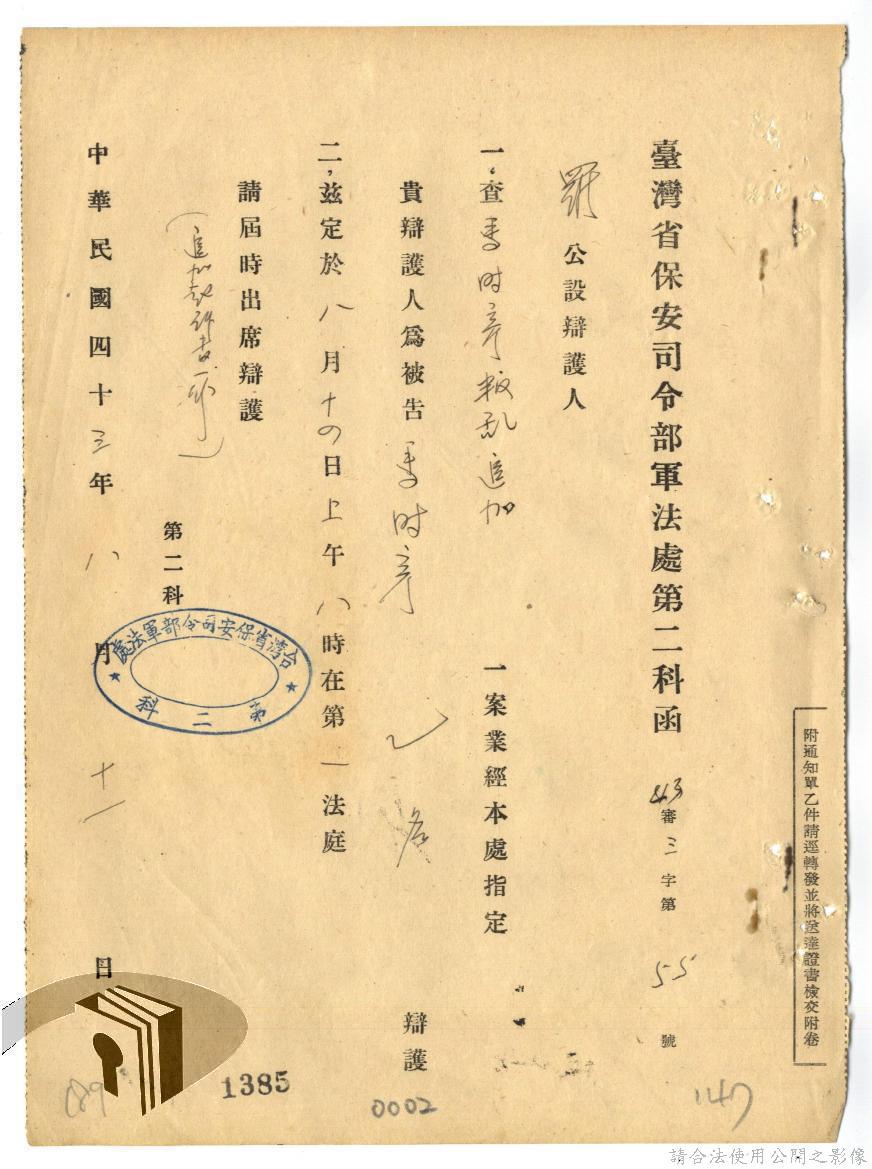 附通知單乙件請逕轉發並將送達證書檢交附卷
臺灣省保安司令部軍法處第二科函 43審三字第55號
羅公設辯護人
一、查馬时彥叛乱追加一案業經本處指定
貴辯護人為被告馬时彥乙名辯護
二、茲定於八月十四日上午八時在第一法庭
請屆時出席辯護
(追加起訴書一份)
第二科
台灣省保安司令部軍法處
第二科
中華民國四十三年八月十一日
1385
0002
147
189
請合法使用公開之影像